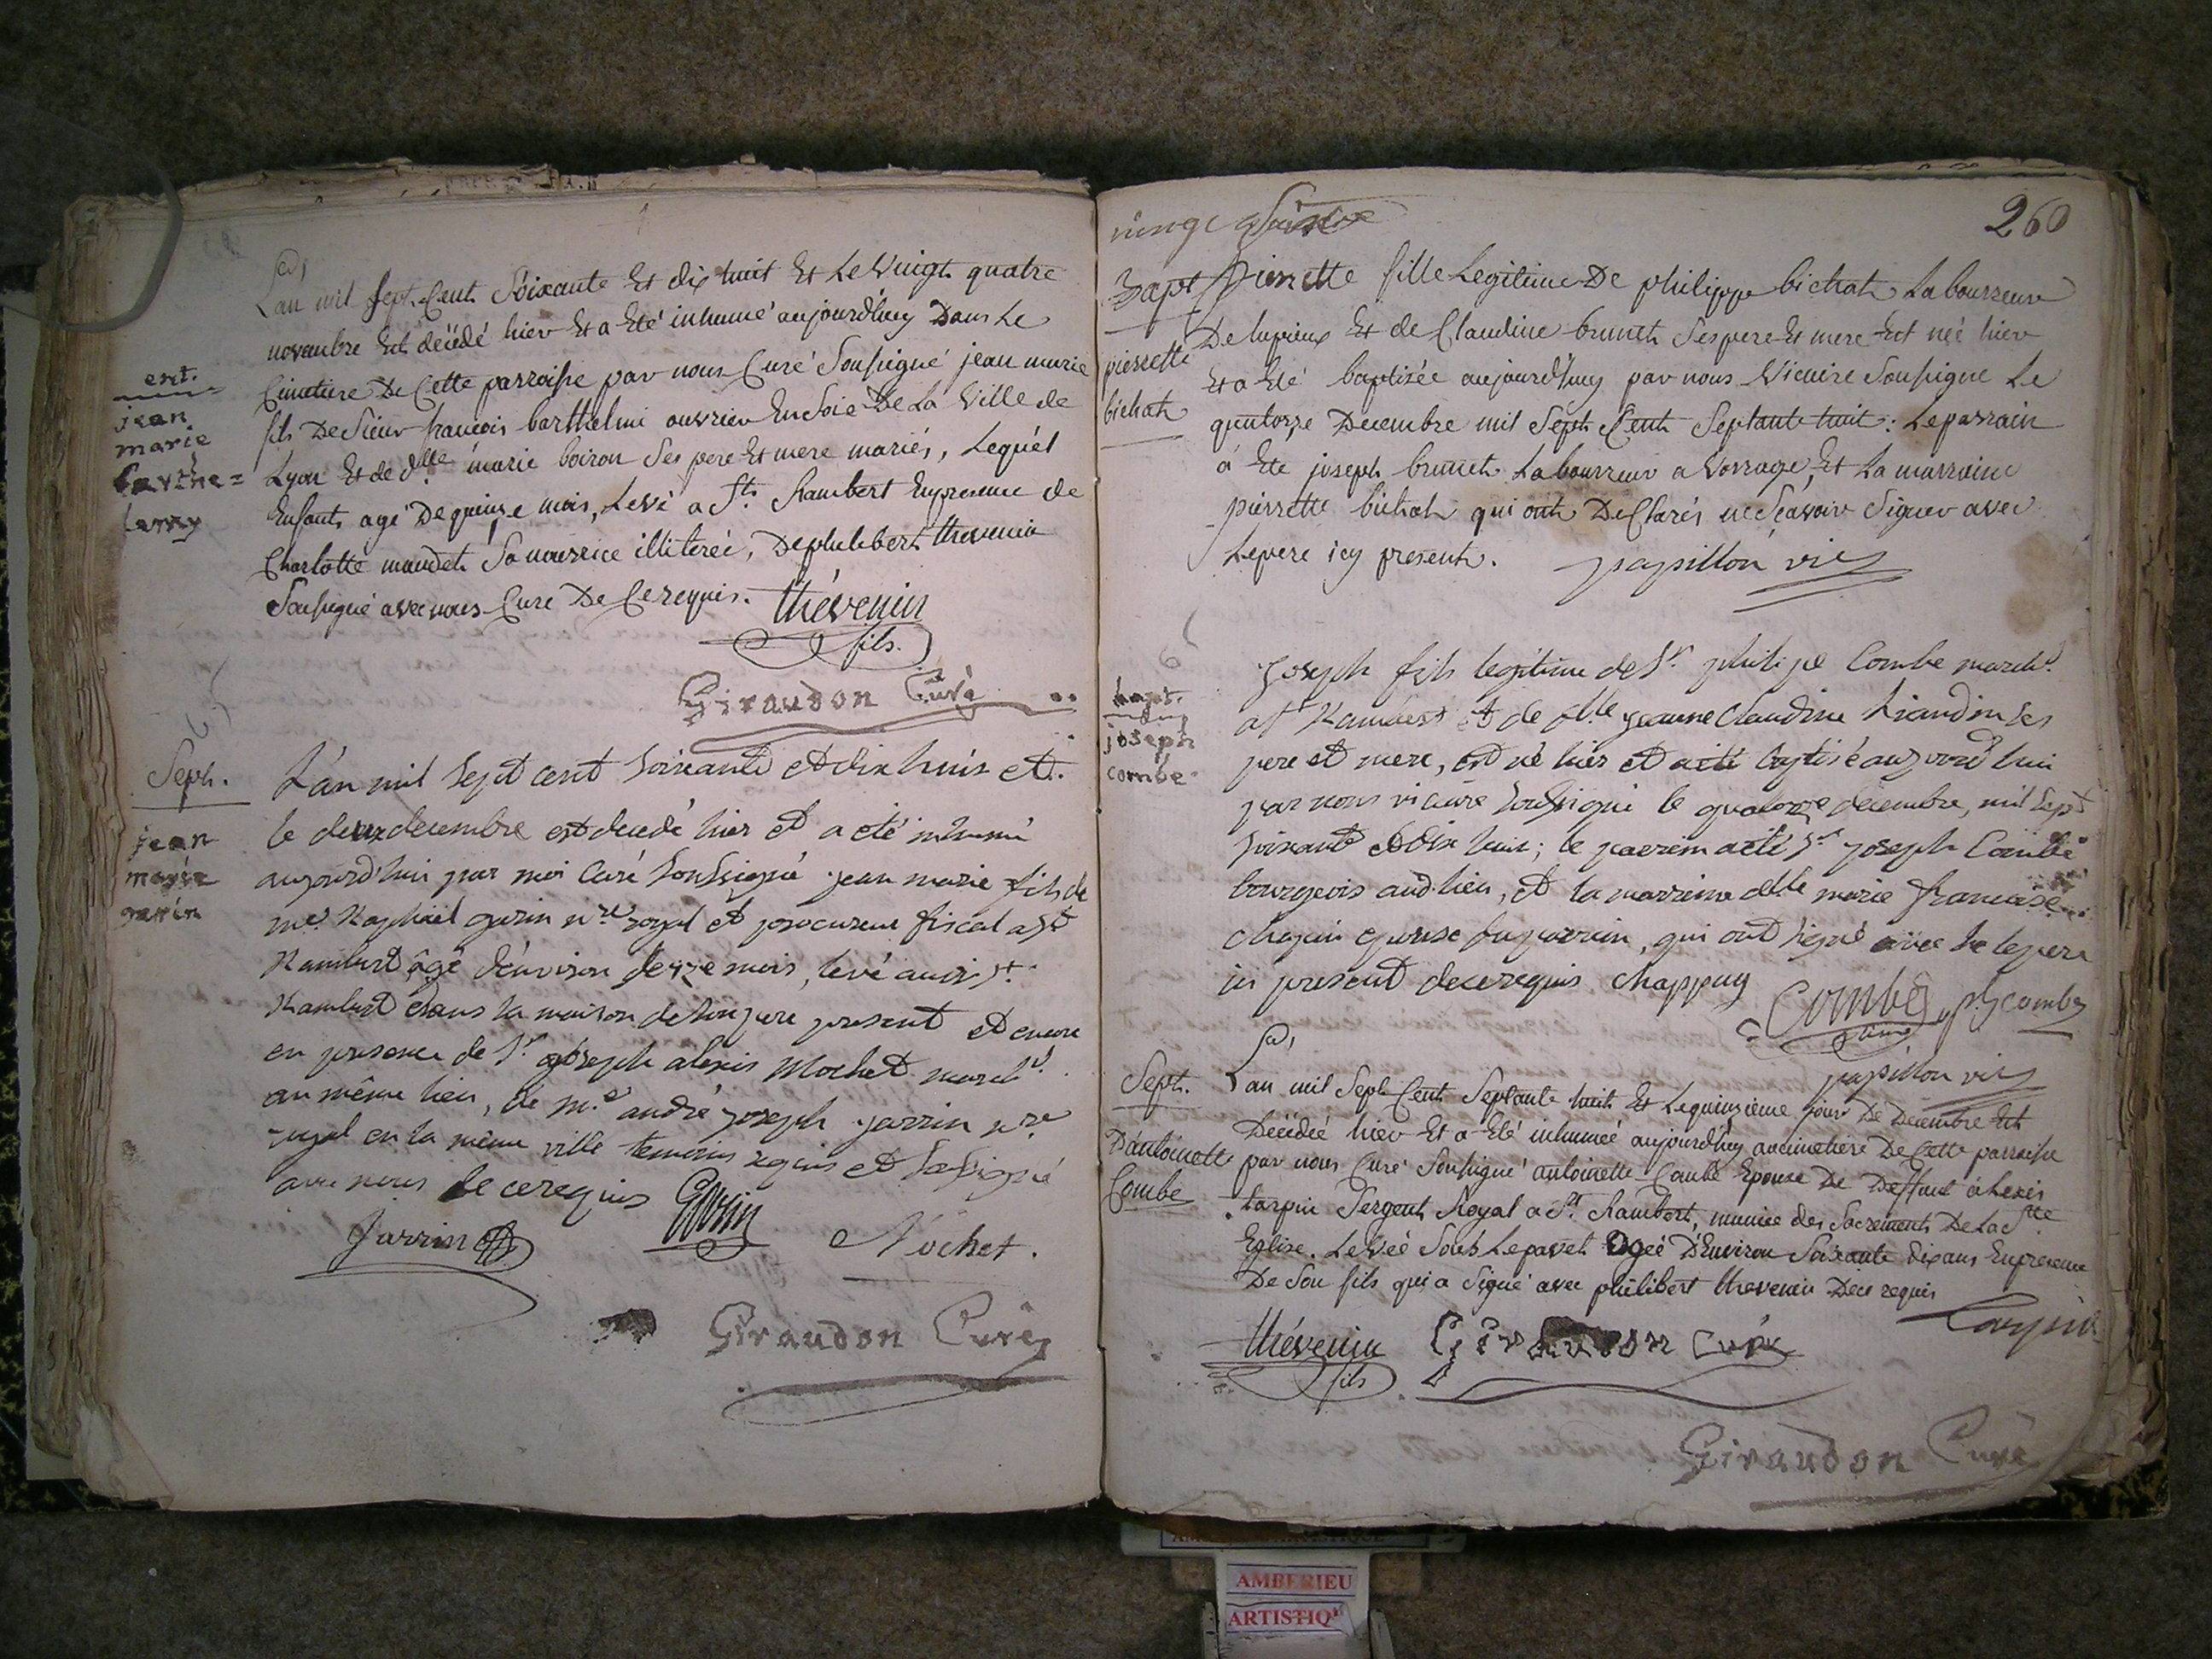 L'an mil sept Cent Soixante Et dix huit Et Le Vingt quatre
novembre Est décédé hier Et a Eté inhumé aujourdhuy Dans Le
Cimetiere De Cette parroisse par nous Curé Soussigné jean marie
fils De Sieur francois barthelmi ouvrier En Soie De La Ville de
Lyon Et de dlle marie boiron Ses pere Et mere mariés, Lequel
Enfant agé De quinze mois, Levé a St. Rambert En presence de
Charlotte maudet Sa nourrice illiterée, De philibert thevenin
Soussigné avec nous Curé De Ce requis. thévenin
fils.
Giraudon Curé
ent.
jean
marie
barthe=
Seph.
jean
marie
L'an mil sept cent soixante et dix huit et
le deux decembre est decedé hier et a eté inhumé
aujourd'hui par moi Curé soussigné jean marie fils de
me. Raphaël nre royal et procureur fiscal a St
Rambert âgé d'environ mois, levé audit St.
Rambert dans la maison de son pere present et encore
en presence de Sr joseph alexis Mochet march.d
au même lieu, de m.e andré joseph jarrin nre
royal en la même ville temoins requis et soussigné
avec nous de ce requis
Jarrin Mochet.
Giraudon Curé
260
Bapt
pierrette
bichat
Pierrette fille Legitime De philippe bichat Laboureur
De lupieux Et de Claudine brunet Ses pere Et mere Est née hier
Et a Eté baptizée aujourdhuy par nous Vicaire Soussigné Le
quatorze Decembre mil Sept Cent Septante huit: Le parrain
á Eté joseph brunet Laboureur a Vorrage, Et La marraine
pierrette bichat qui ont DeClarés ne Scavoir Signer avec
Le pere icy present. papillon vic
bapt.
joseph
combe
Joseph fils legitime de Sr. philipe Combe march.d
a St Rambert et de dlle jeanne Claudine Liandin ses
pere et mere, est né hier et a eté baptisé aujourd'hui
par nous vicaire soussigné le quatorze decembre, mil sept
soixante et dix huit; le parrein a eté Sr joseph Combe
bourgeois aud. lieu, et la marraine dlle marie francoise
epouse du parrain, qui ont signé avec le pere
ici present de ce requis chappuy Combe ph combe
papillon vic
Sept.
D'antoinette
Combe
L'an mil Sept Cent Septante huit Et Le quinzieme jour De Decembre Est
Décédée hier Et a Eté inhumée aujourdhuy au cimetiere De Cette parroisse
par nous Curé Soussigné antoinette Combe Epouse De Deffunt alexis
tarpin Sergent Royal a St. Rambert, munie des Sacrements De La Ste
Eglise. Levée Sous Le pavet agée D'Environ Soixante dix ans En presence
De Son fils qui a Signé avec philibert thevenin De ce requis
thévenin Giraudon Curé
fils
Giraudon Curé
AMBERIEU
ARTISTIQ